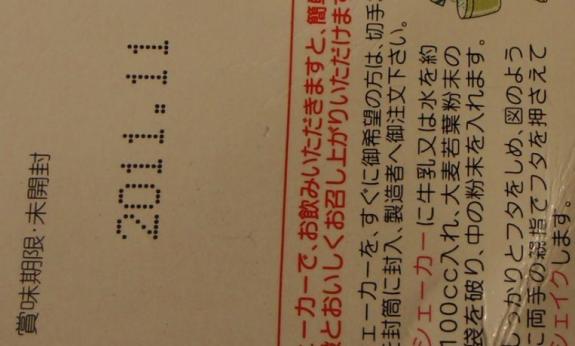 賞味期限・未開封
2011.11
ーカーで、お飲みいただきますと、簡
とおいしくお召し上がりいただけます
ェーカーを、すぐに御希望の方は、切手
封筒に封入、製造者へ御注文下さい。
シェーカーに牛乳又は水を約
100cc入れ、大麦若葉粉末の
袋を破り、中の粉末を入れます。
しっかりとフタをしめ、図のよう
に両手の親指でフタを押さえて
シェイクします。